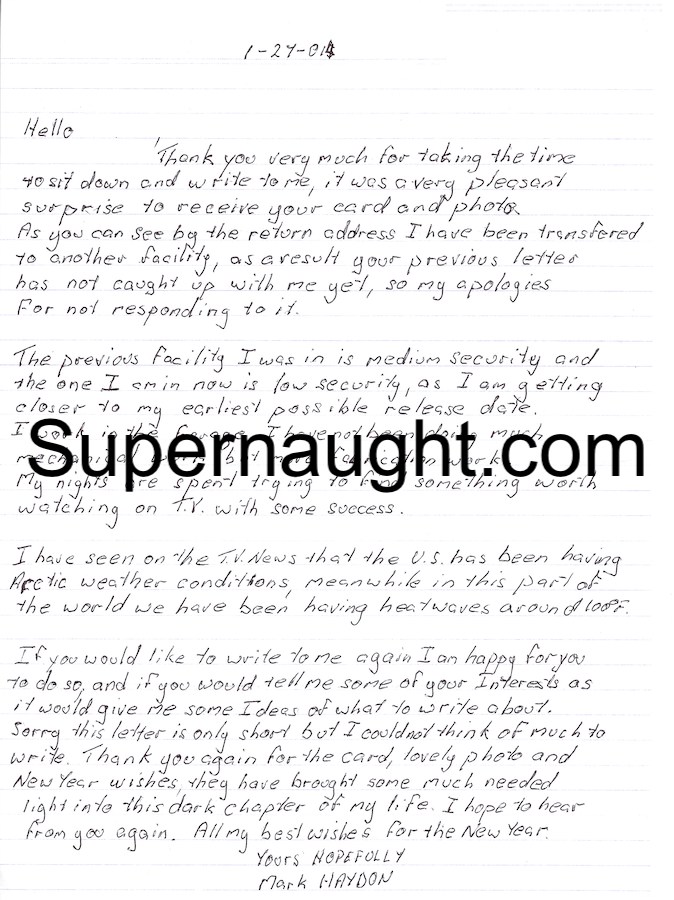 1-27-014
Hello
Thank you very much for taking the time
to sit down and write to me, it was a very pleasant
surprise to receive your card and photo.
As you can see by the return address I have been transfered
to another facility, as a result your previous letter
has not caught up with me yet, so my apologies
For not responding to it.
The previous facility I was in is medium security and
the one I am in now is low security, as I am getting
closer to my earliest possible release date.
I work in the garage, I have not been doing much
mechanical work but more fabrication work.
Supernaught.com
My nights are spent trying to find something worth
watching on T.V. with some success.
I have seen on the T.V. News that the U.S. has been having
Arctic weather conditions, meanwhile in this part of
the world we have been having heatwaves around 100°F.
If you would like to write to me again I am happy for you
to do so, and if you would tell me some of your Interests as
it would give me some Ideas of what to write about.
Sorry this letter is only short but I could not think of much to
write. Thank you again for the card, lovely photo and
New Year wishes, they have brought some much needed
light into this dark chapter of my life. I hope to hear
from you again. All my best wishes for the New Year.
Yours HOPEFULLY
Mark HAYDON